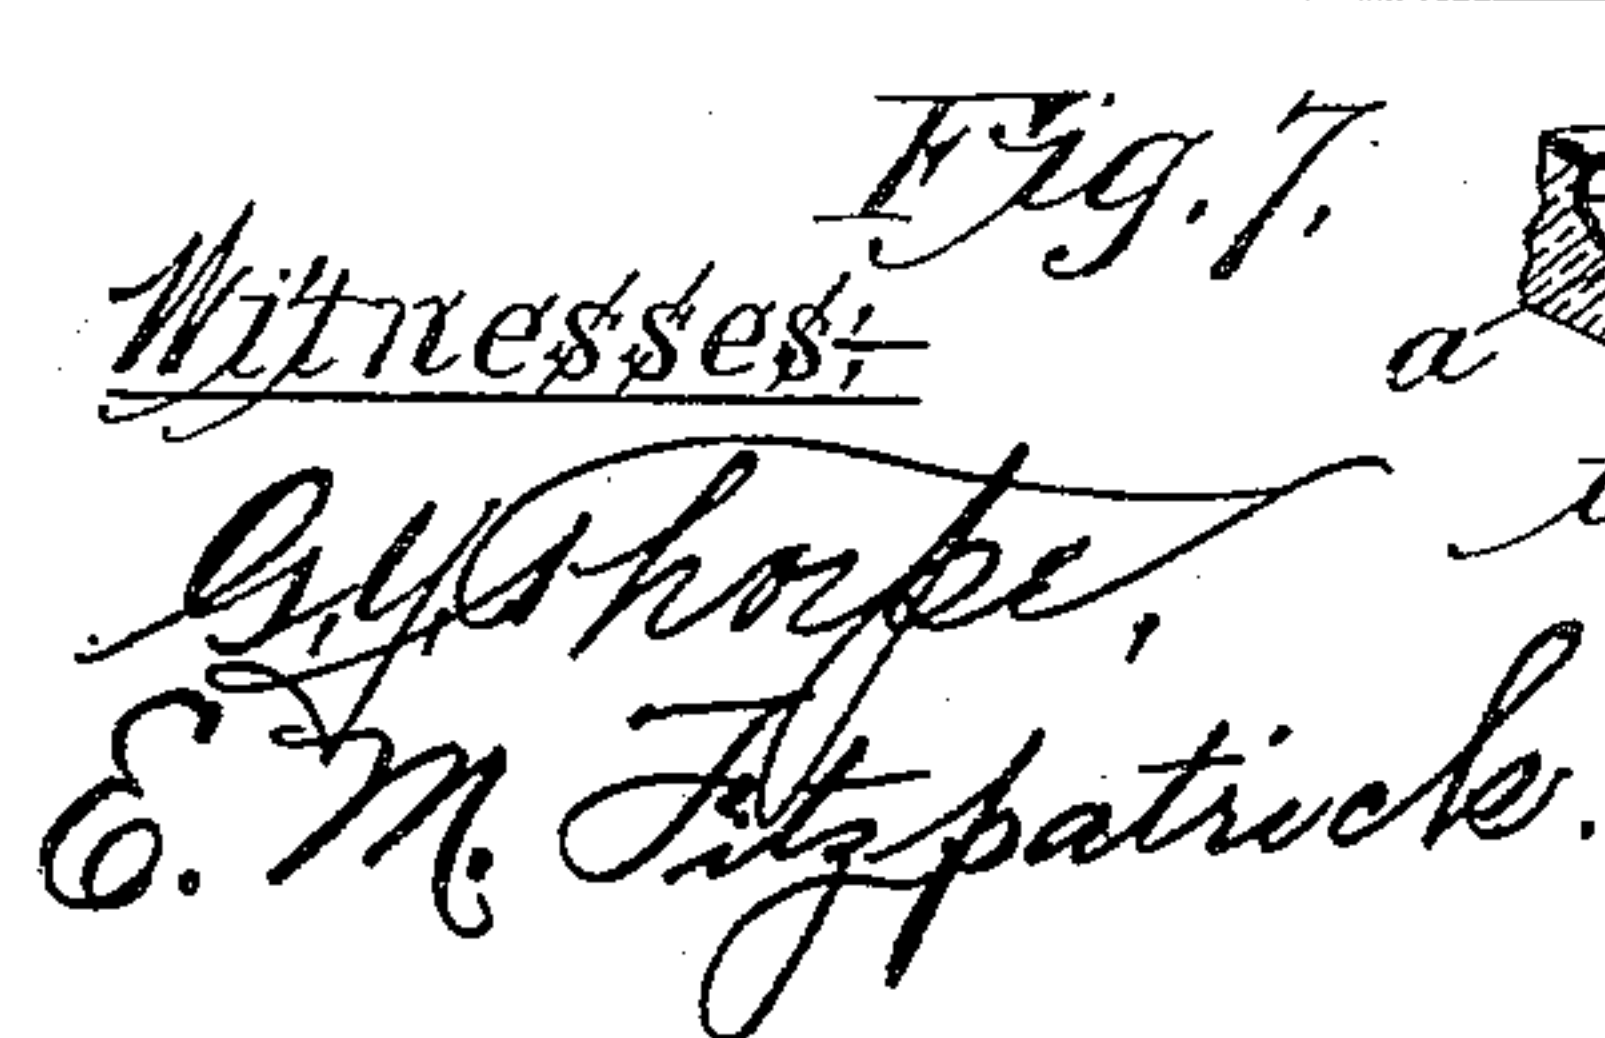 Fig. 7.
Witnesses:-
a
G. Y. Thorpe,
E. M. Fitzpatrick.